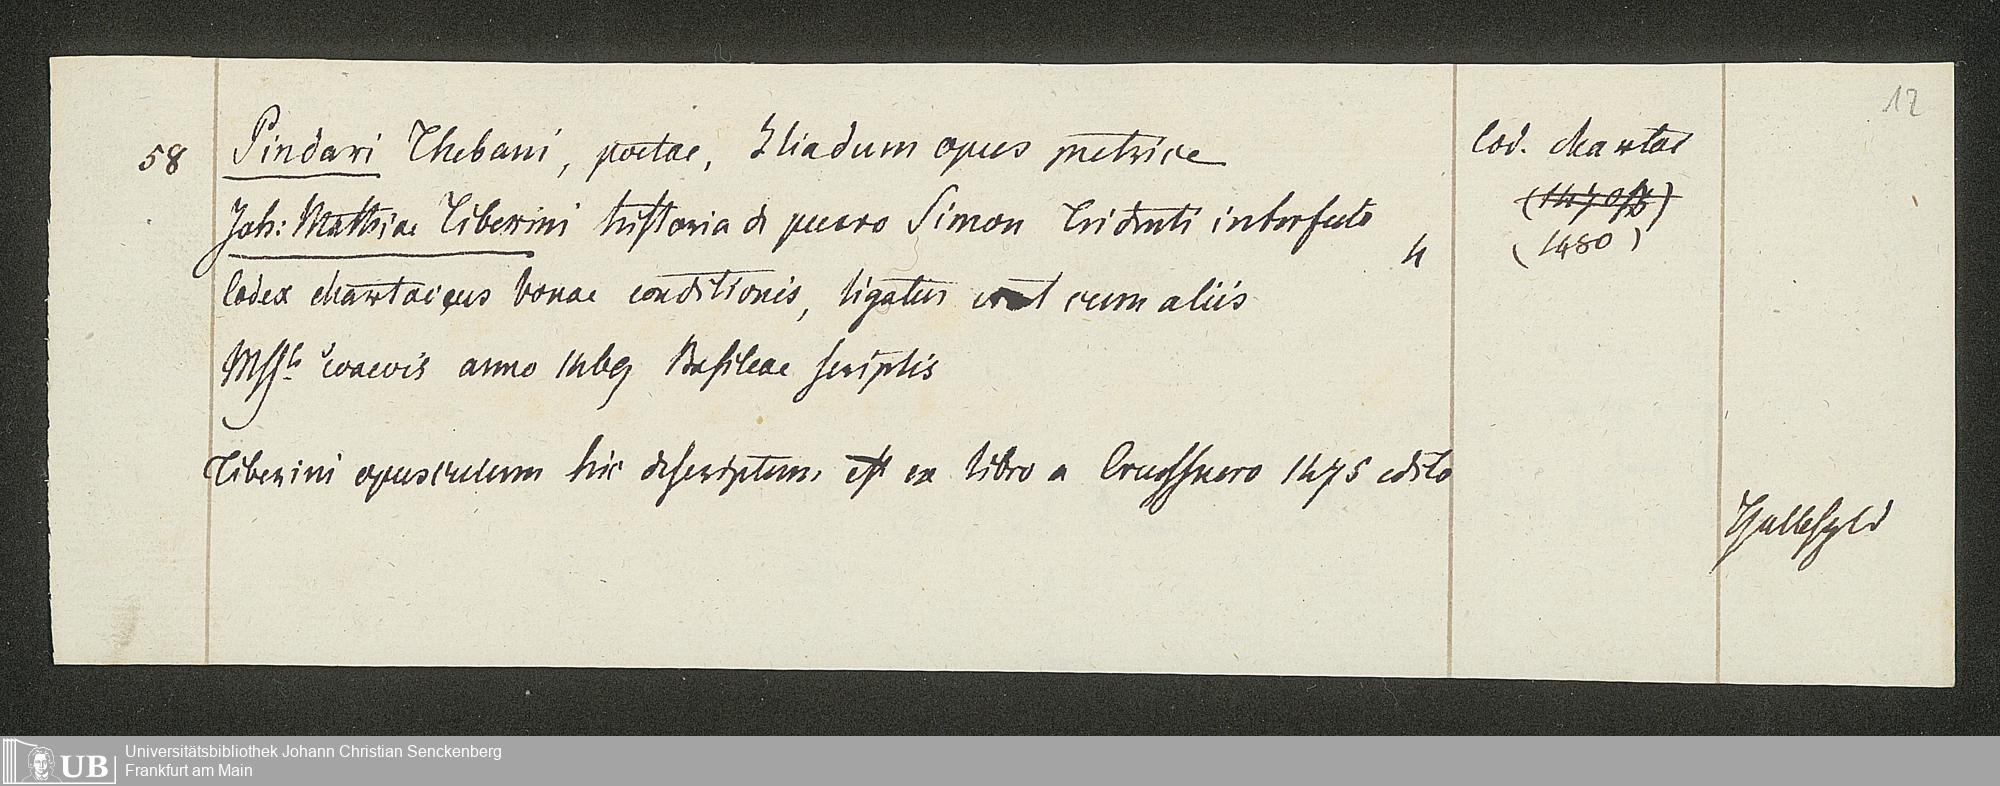 12
58 Pindari Thebani, poetae, Iliadum opus metrice Cod. chartac
Joh: Mathiae Tiberini historia de puero Simon Tridenti interfecto 4
(1480)
Codex chartaceus bonae conditionis, ligatus erat cum aliis
Msstis coaevis anno 1469 Basileae scriptis
Tiberini opusculum hic descriptum est ex libro a Creussnero 1475 edito
UB Universitätsbibliothek Johann Christian Senckenberg
Frankfurt am Main